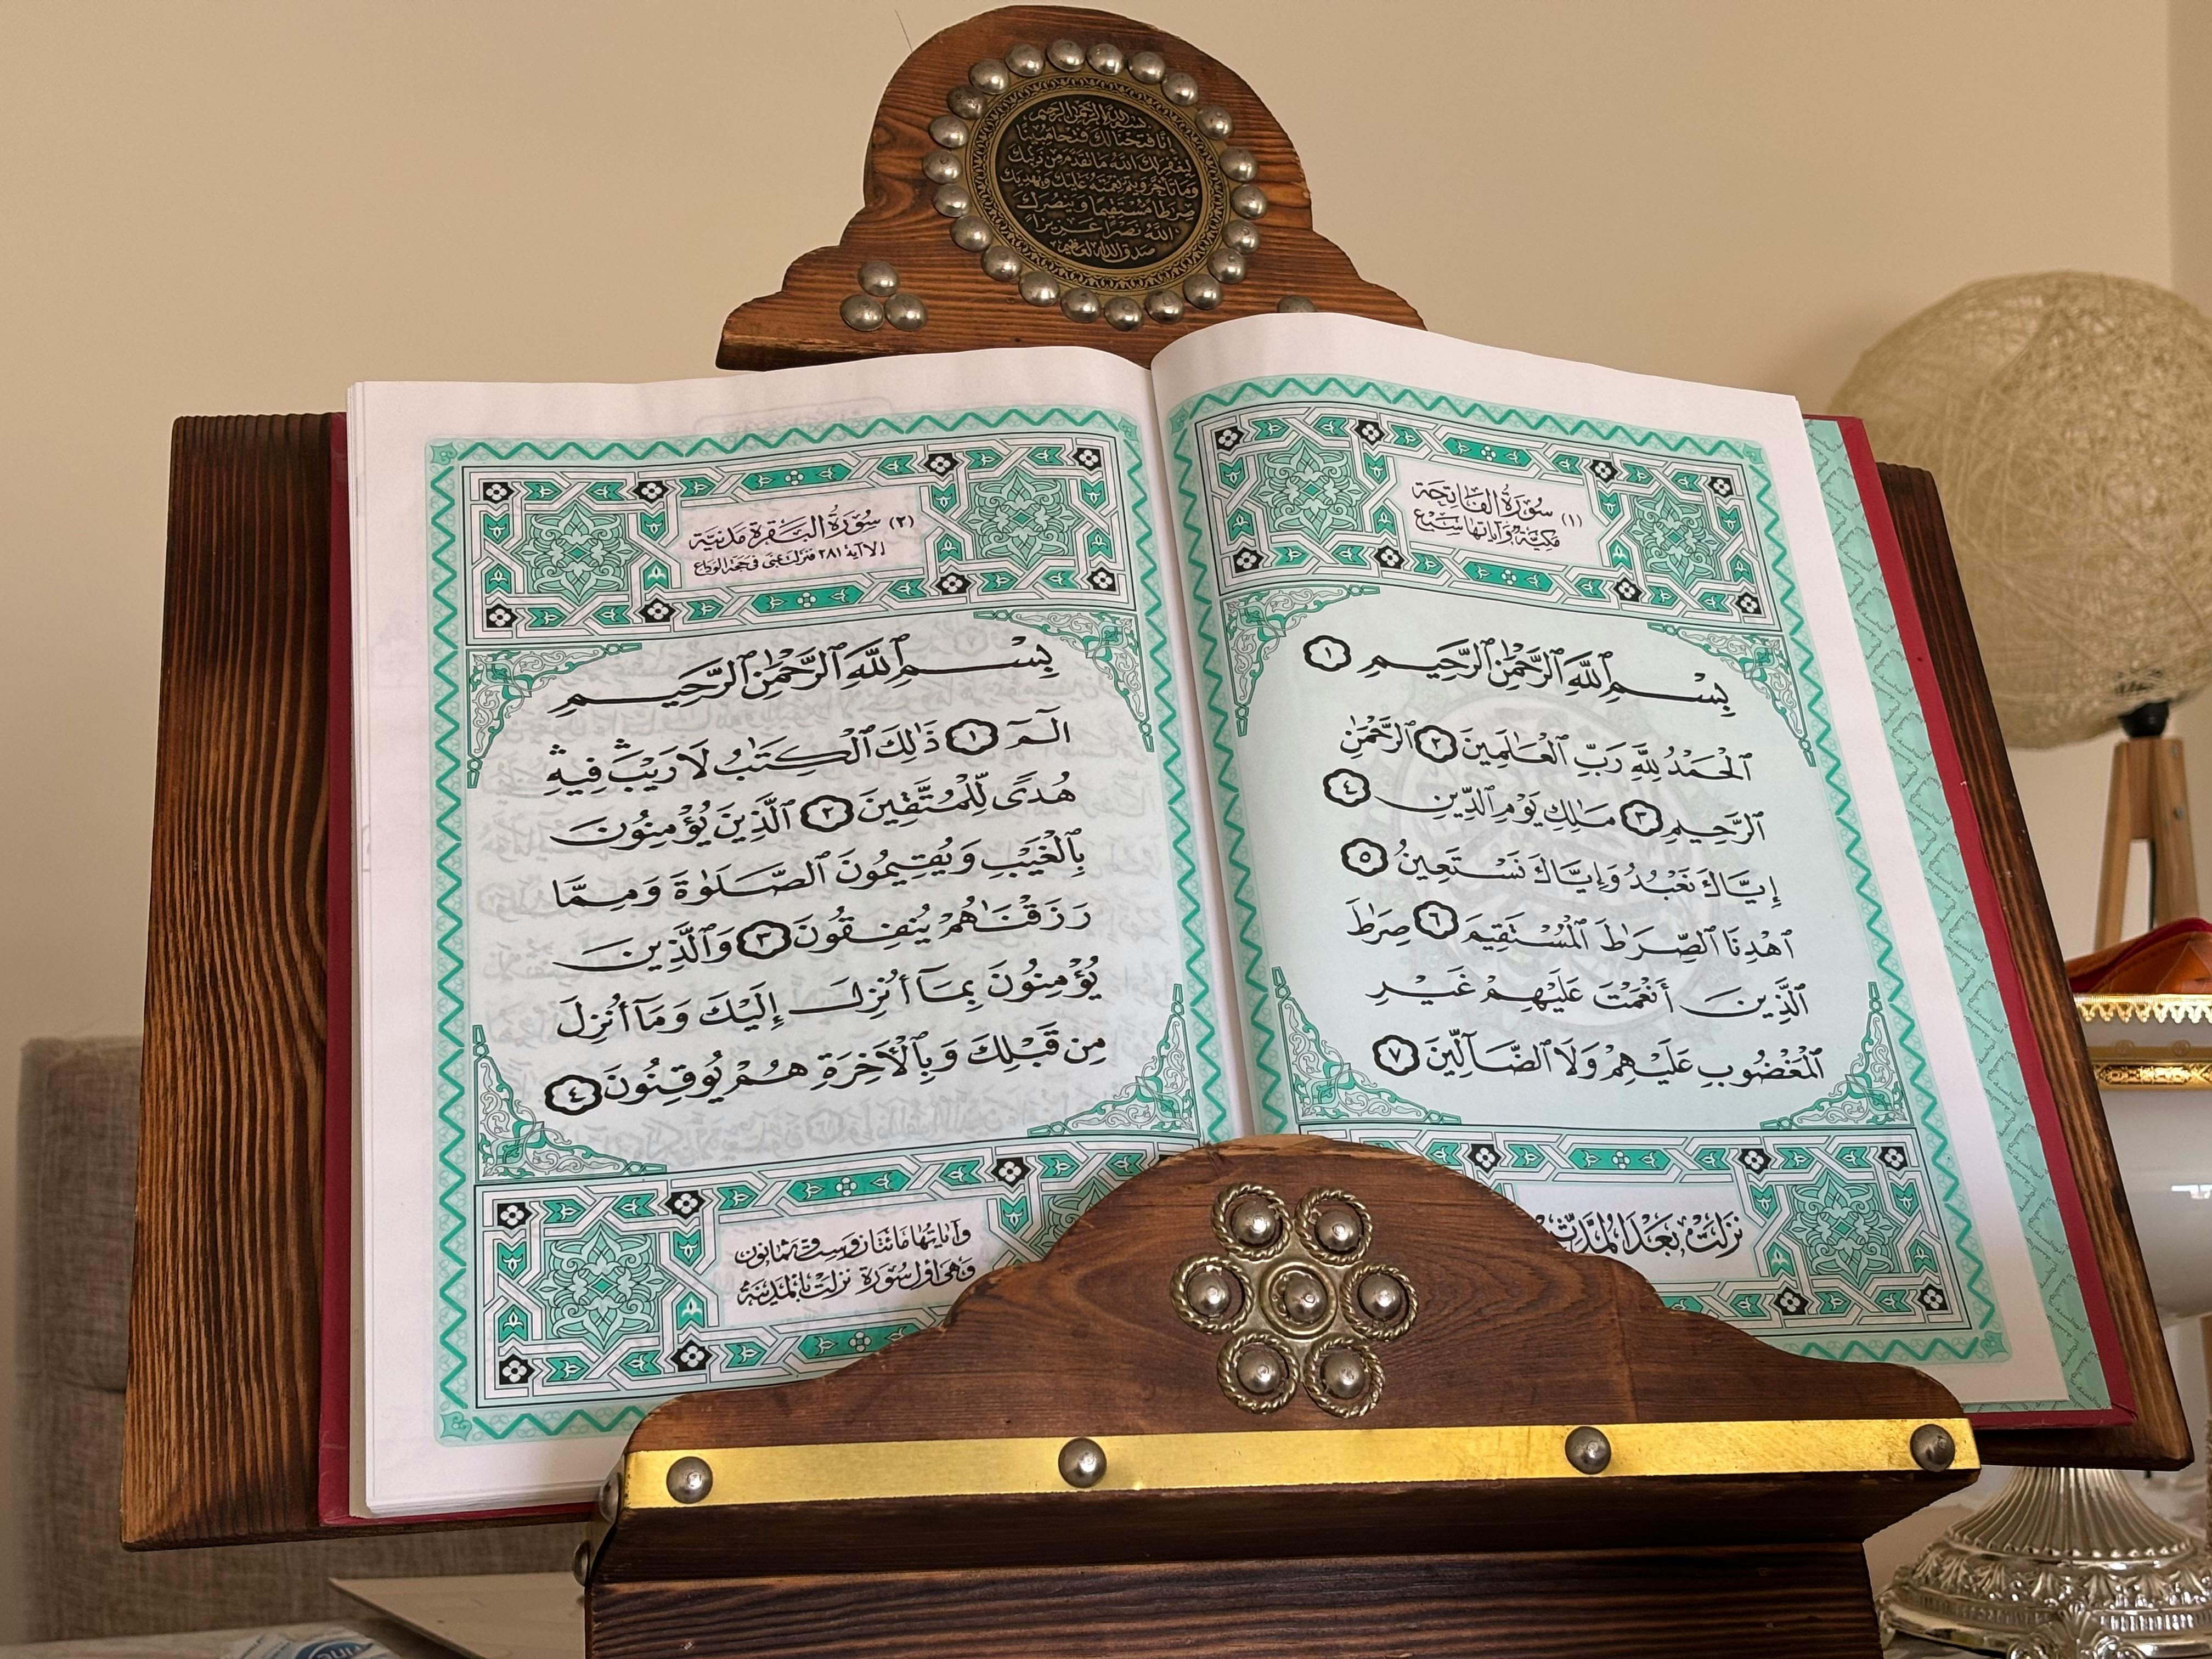 بسم الله الرحمن الرحيم
إنا فتحنا لك فتحا مبينا
ليغفر لك الله ما تقدم من ذنبك
وما تأخر ويتم نعمته عليك ويهديك
صرطا مستقيما وينصرك
الله نصرا عزيزا
صدق الله العظيم
(١) سُورَةُ الفَاتِحَة
مَكِيَّة وَآيَاتُهَا سَبْع
بِسْمِ ٱللَّهِ ٱلرَّحْمَٰنِ ٱلرَّحِيمِ ١
ٱلْحَمْدُ لِلَّهِ رَبِّ ٱلْعَٰلَمِينَ ٢ ٱلرَّحْمَٰنِ
ٱلرَّحِيمِ ٣ مَٰلِكِ يَوْمِ ٱلدِّينِ ٤
إِيَّاكَ نَعْبُدُ وَإِيَّاكَ نَسْتَعِينُ ٥
ٱهْدِنَا ٱلصِّرَٰطَ ٱلْمُسْتَقِيمَ ٦ صِرَٰطَ
ٱلَّذِينَ أَنْعَمْتَ عَلَيْهِمْ غَيْرِ
ٱلْمَغْضُوبِ عَلَيْهِمْ وَلَا ٱلضَّآلِّينَ ٧
نَزَلَتْ بَعْدَ المُدَّثِّر
(٢) سُورَةُ البَقَرَة مَدَنِيَّة
إلا آية ٢٨١ فنزلت بمنى في حجة الوداع
بِسْمِ ٱللَّهِ ٱلرَّحْمَٰنِ ٱلرَّحِيمِ
الٓمٓ ١ ذَٰلِكَ ٱلْكِتَٰبُ لَا رَيْبَ ۛ فِيهِ ۛ
هُدًى لِّلْمُتَّقِينَ ٢ ٱلَّذِينَ يُؤْمِنُونَ
بِٱلْغَيْبِ وَيُقِيمُونَ ٱلصَّلَوٰةَ وَمِمَّا
رَزَقْنَٰهُمْ يُنفِقُونَ ٣ وَٱلَّذِينَ
يُؤْمِنُونَ بِمَآ أُنزِلَ إِلَيْكَ وَمَآ أُنزِلَ
مِن قَبْلِكَ وَبِٱلْأَخِرَةِ هُمْ يُوقِنُونَ ٤
وَآيَاتُهَا مَائتَان وَسِت وَثَمَانُون
وَهِيَ أَوَّل سُورَة نَزَلَتْ بِالْمَدِينَة